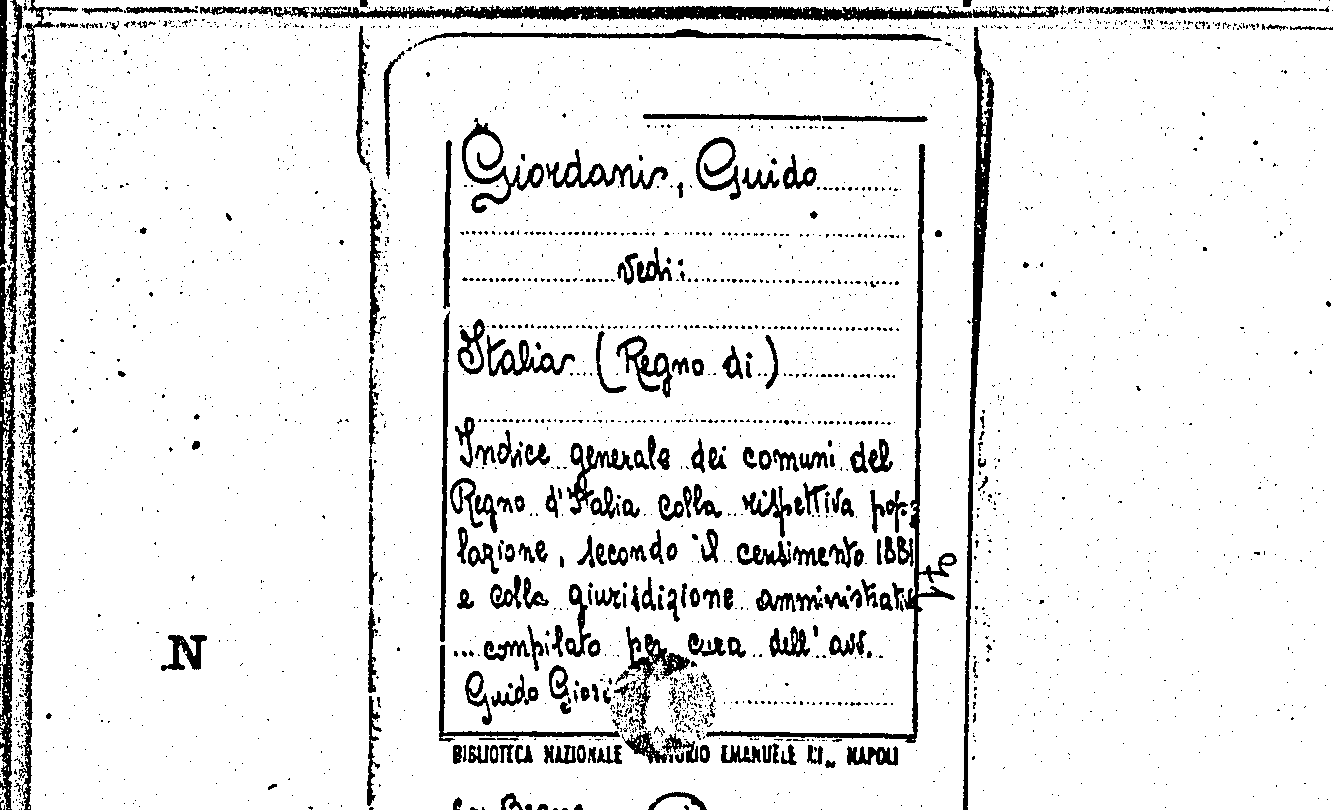 Giordani, Guido
vedi:
Italia (Regno di)
Indice generale dei comuni del
Regno d'Italia colla rispettiva popo=
lazione, secondo il censimento 1881
e colla giurisdizione amministrativa
... compilato per cura dell' avv.
Guido
BIBLIOTECA NAZIONALE EMANUELE III., NAPOLI
N